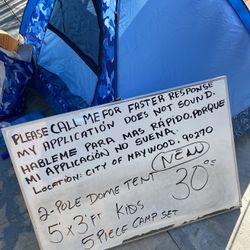 PLEASE CALL ME FOR FASTER RESPONSE
MY APPLICATION DOES NOT SOUND.
HABLEME PARA MAS RÁPIDO, PORQUE
MI APLICACIÓN NO SUENA.
Location: CITY OF MAYWOOD, 90270
NEW
2-POLE DOME TENT 30 00
5 x 3 Ft KIDS
5 PIECE CAMP SET